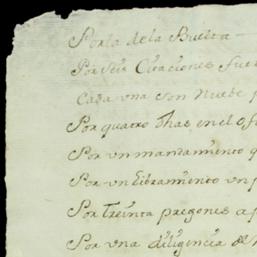 Por la de la Buelta -
Por seis Citaciones fue
Cada vna con Nuebe
Por quatro
Por vn mandamiento
Por vn libramiento vn
Por Treinta pregones a
Por vna diligencia de